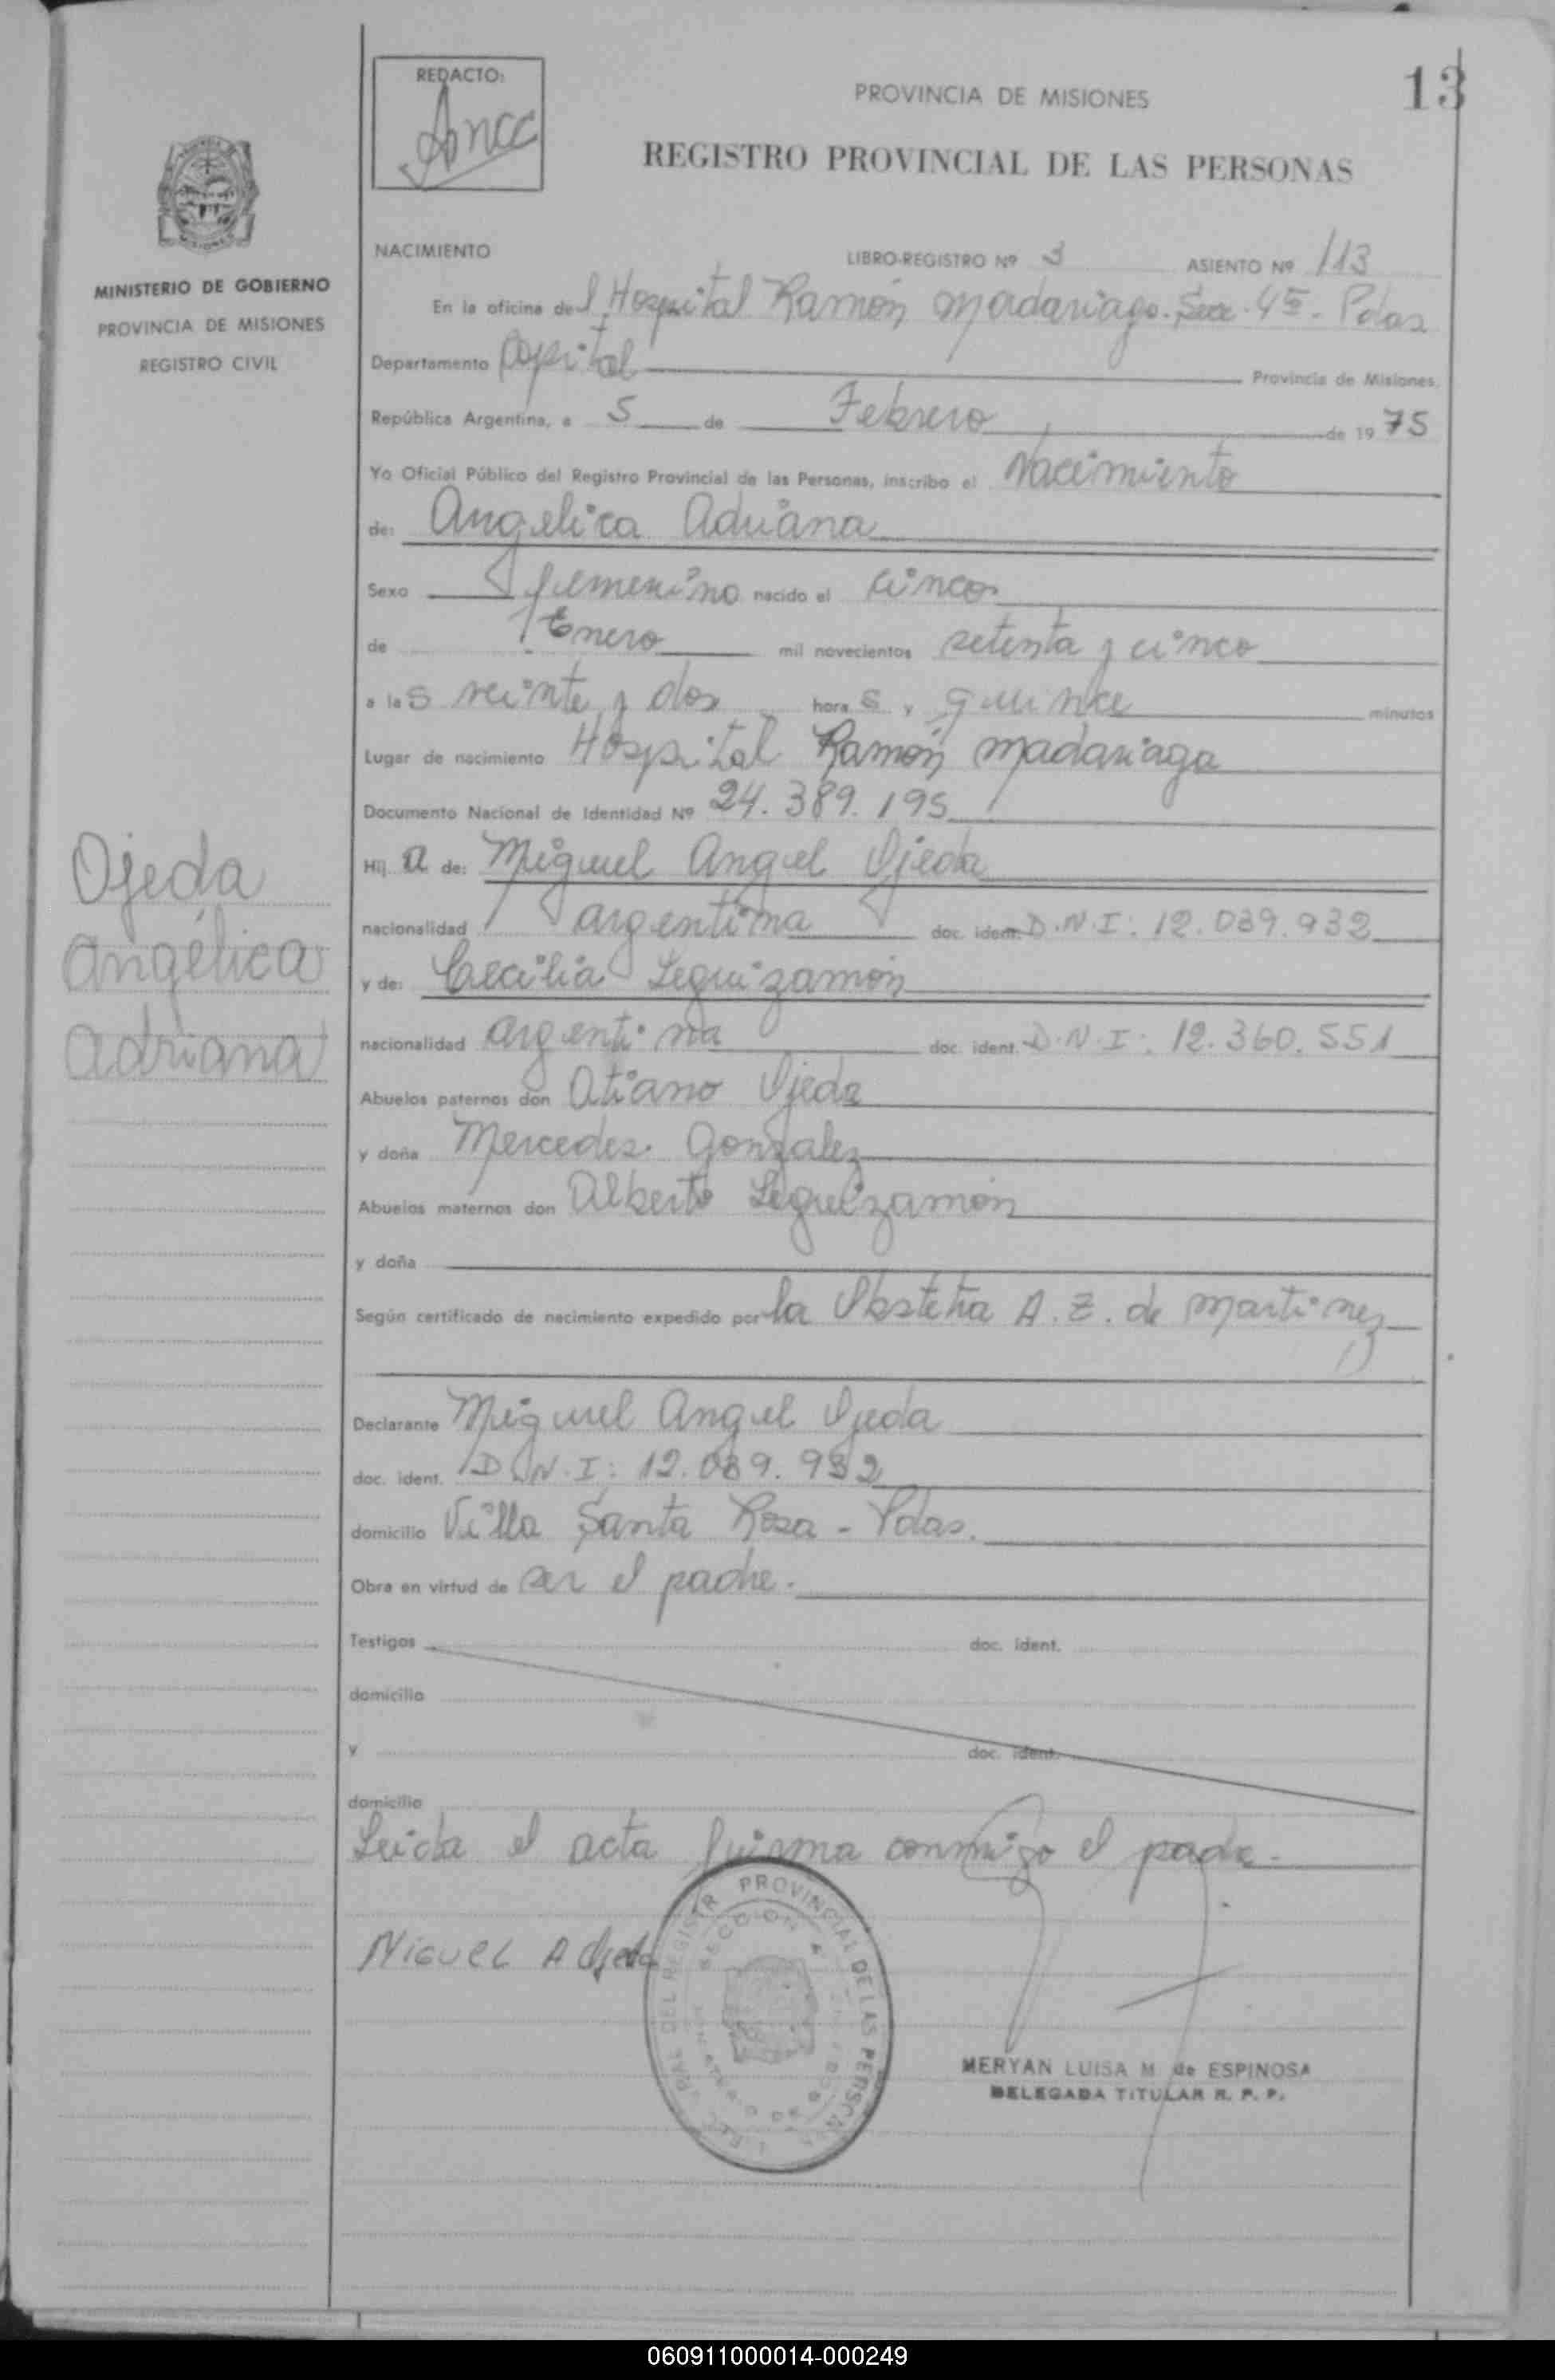 REDACTO:
PROVINCIA DE MISIONES
13
REGISTRO PROVINCIAL DE LAS PERSONAS
MINISTERIO DE GOBIERNO
PROVINCIA DE MISIONES
REGISTRO CIVIL
NACIMIENTO LIBRO-REGISTRO Nº 3 ASIENTO Nº 113
En la oficina del Hospital Ramón Madariaga. Secc. 4ta. Pdas
Departamento Capital Provincia de Misiones,
República Argentina, a 5 de Febrero de 1975
Yo Oficial Público del Registro Provincial de las Personas, inscribo el Nacimiento
de: Angelica Adriana
Sexo femenino nacido el cinco
de Enero mil novecientos setenta y cinco
a las veinte y dos horas y quince minutos
Lugar de nacimiento Hospital Ramón Madariaga
Documento Nacional de Identidad Nº 24.389.195
Hija de: Miguel Angel Ojeda
nacionalidad argentina doc. ident. D.N.I: 12.039.932
y de: Cecilia Leguizamón
nacionalidad argentina doc. ident. D.N.I: 12.360.551
Ojeda
Angélica
Adriana
Abuelos paternos don Atiano Ojeda
y doña Mercedes Gonzalez
Abuelos maternos don Alberto Leguizamón
y doña
Según certificado de nacimiento expedido por la Obstetra A. Z. de Martinez
Declarante Miguel Angel Ojeda
doc. ident. D.N.I: 12.039.932
domicilio Villa Santa Rosa - Pdas.
Obra en virtud de ser el padre.
Testigos doc. ident.
domicilio
y doc. ident.
domicilio
Leida el acta firma conmigo el padre.
MIGUEL A Ojeda
PROVINCIAL DE LAS PERSONAS
SECCION 4
MERYAN LUISA M. de ESPINOSA
DELEGADA TITULAR R. P. P.
060911000014-000249